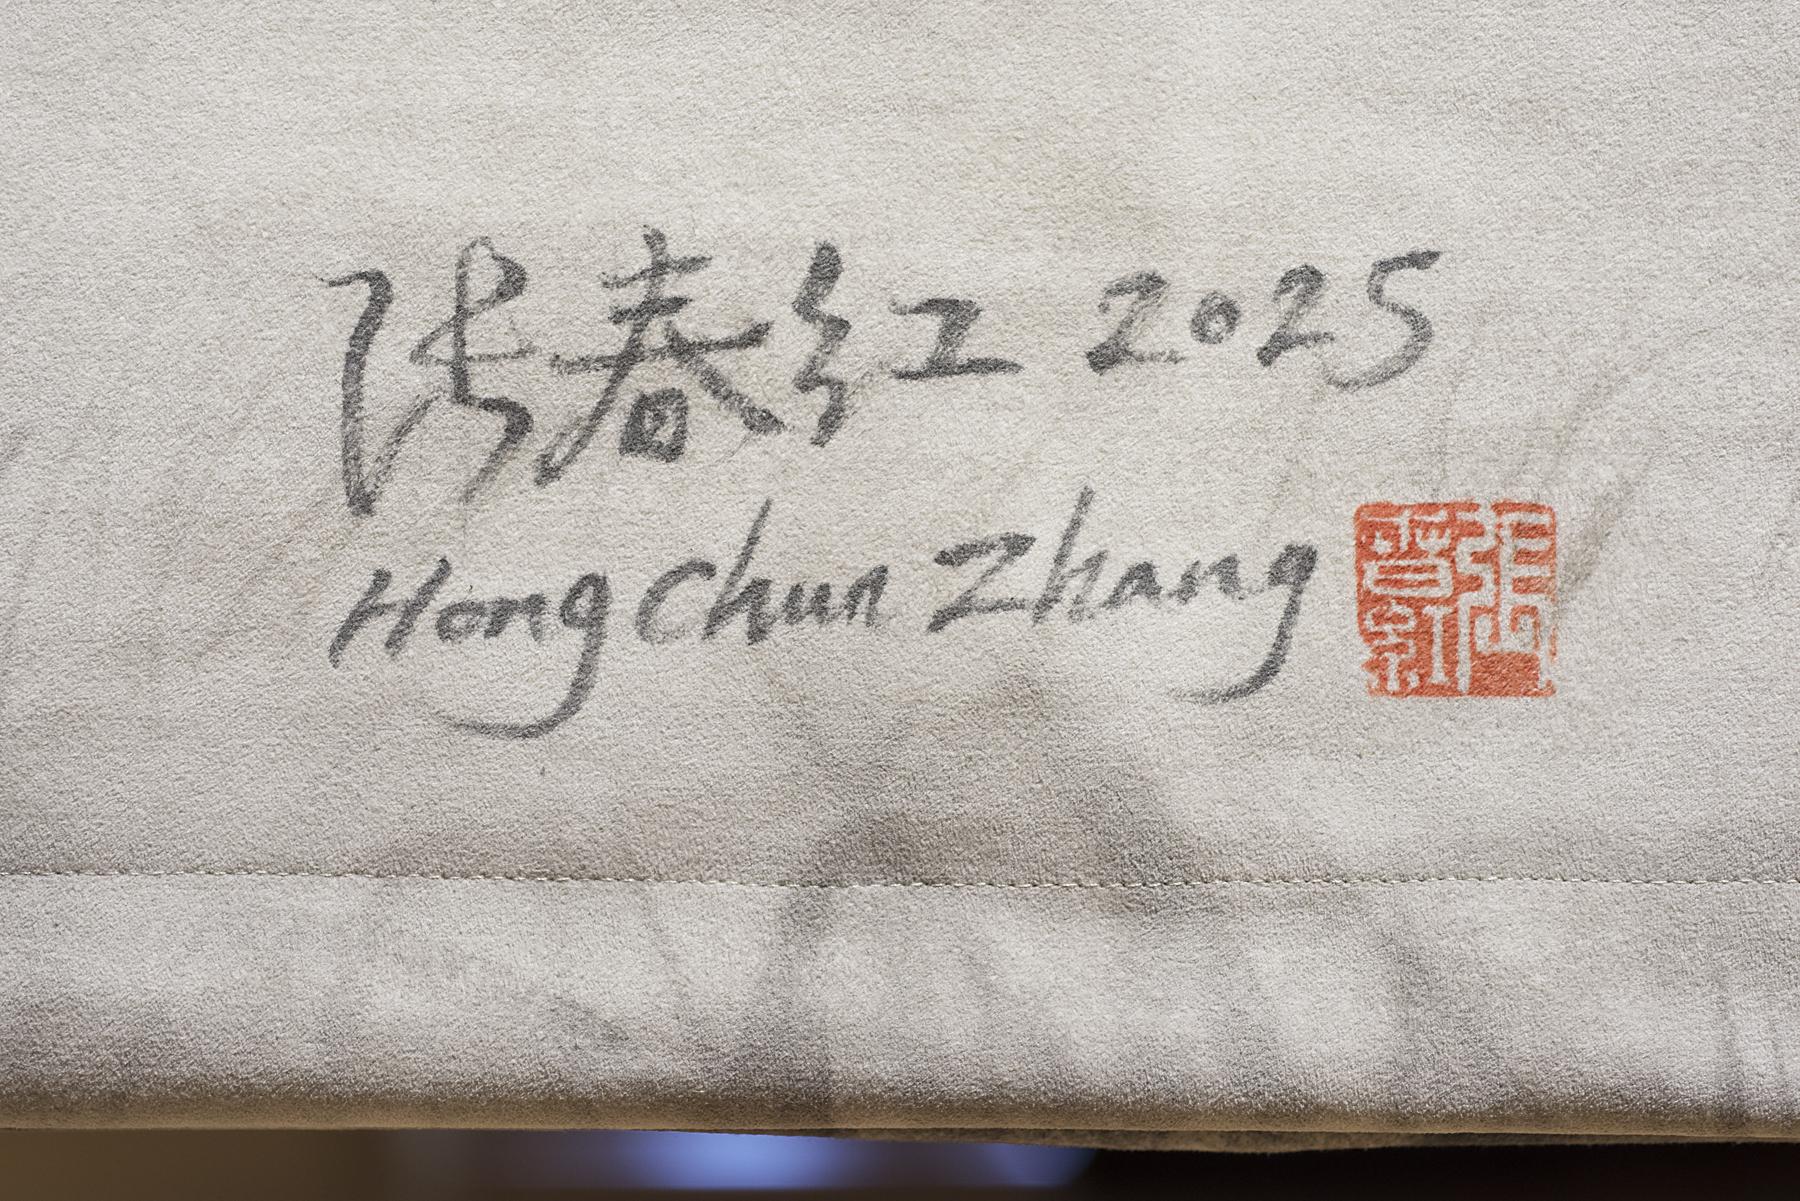 张春红 2025
Hong Chun Zhang
張春紅